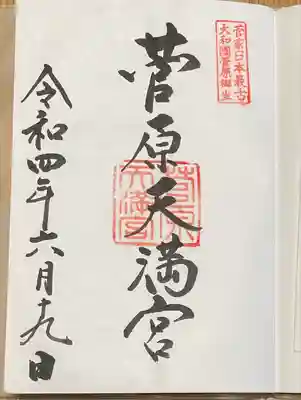 菅家日本最古
大和國菅原
菅原天満宮
菅原
天満宮
令和四年六月十九日